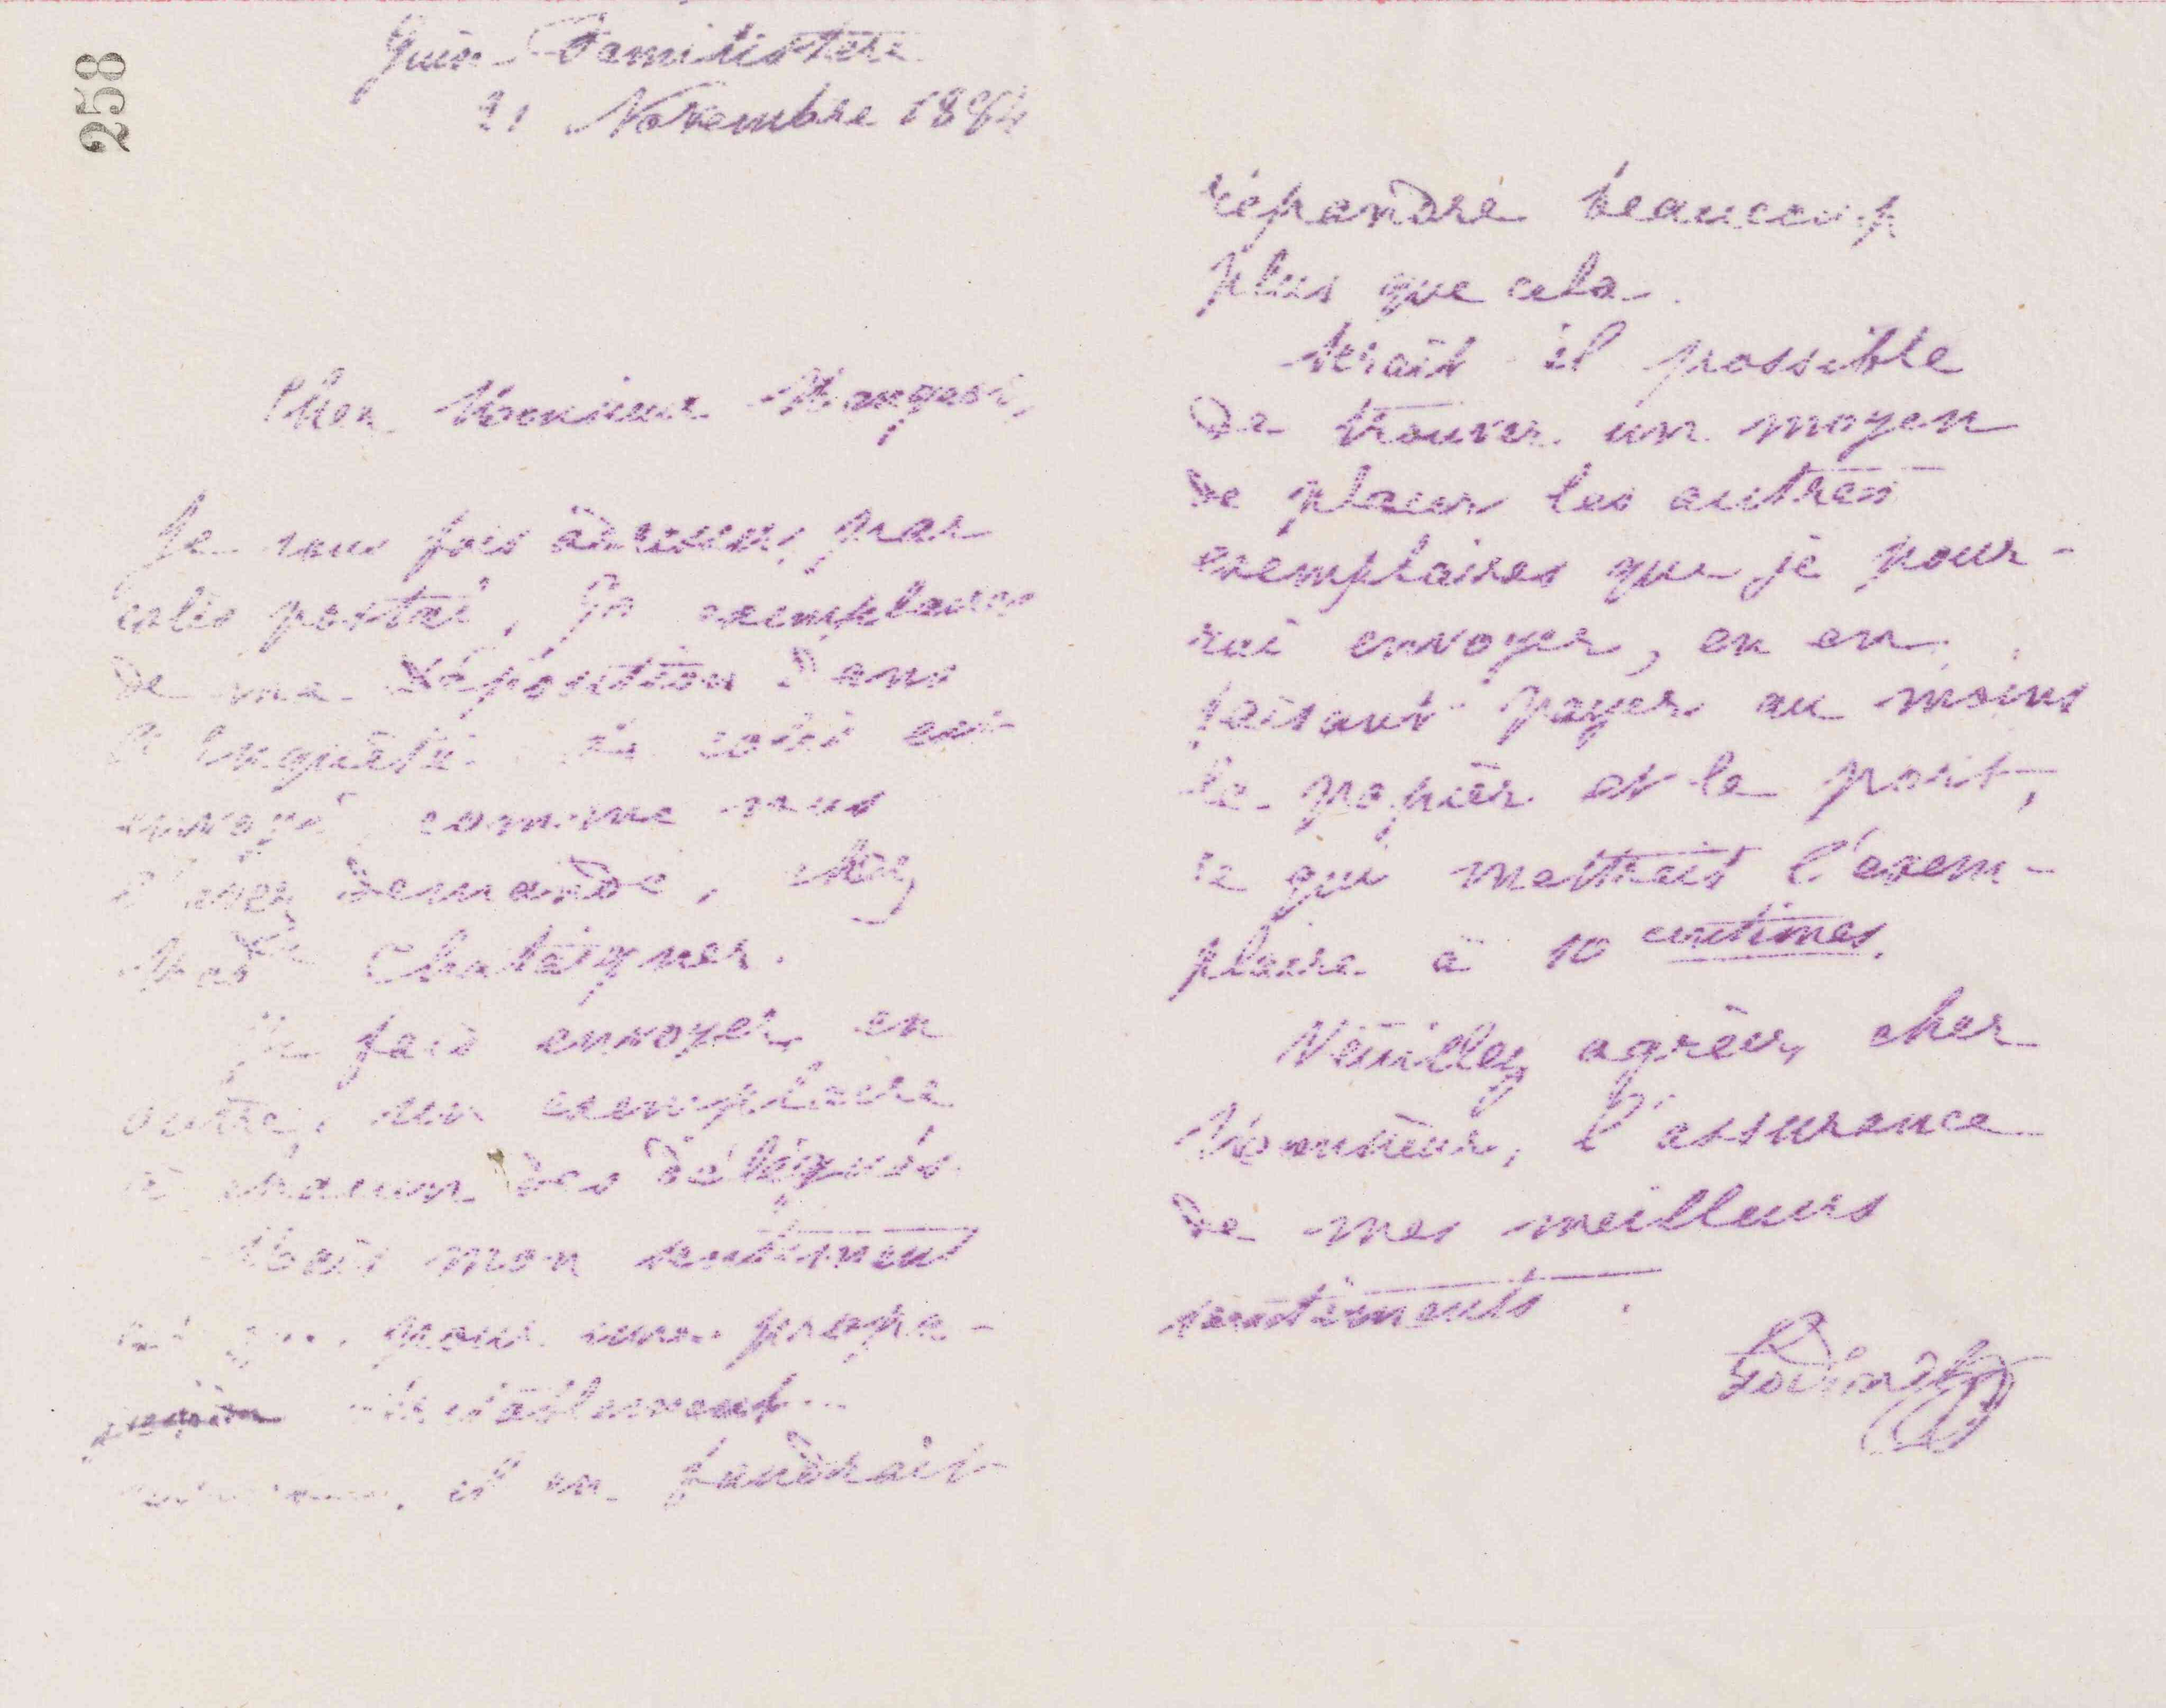 258
Guise-Familistère
21 Novembre 1884
Cher Monsieur Mangeot,
Je vous fais adresser, par
colis postal, 50 exemplaires
de ma déposition dans
l'Enquête. Le colis est
envoyé comme vous
l'avez demandé, chez
Mad Chataigner.
Je fais envoyer, en
outre, un exemplaire
à chacun des délégués.
Mais mon sentiment
est que pour une propa-
il en faudrait
répandre beaucoup
plus que cela.
Serait-il possible
de trouver un moyen
de placer les autres
exemplaires que je pour-
rai envoyer, en en
faisant payer au moins
le papier et le port,
ce qui mettrait l'exem-
plaire à 10 centimes.
Veuillez agréer, cher
Monsieur, l'assurance
de mes meilleurs
sentiments.
Godin